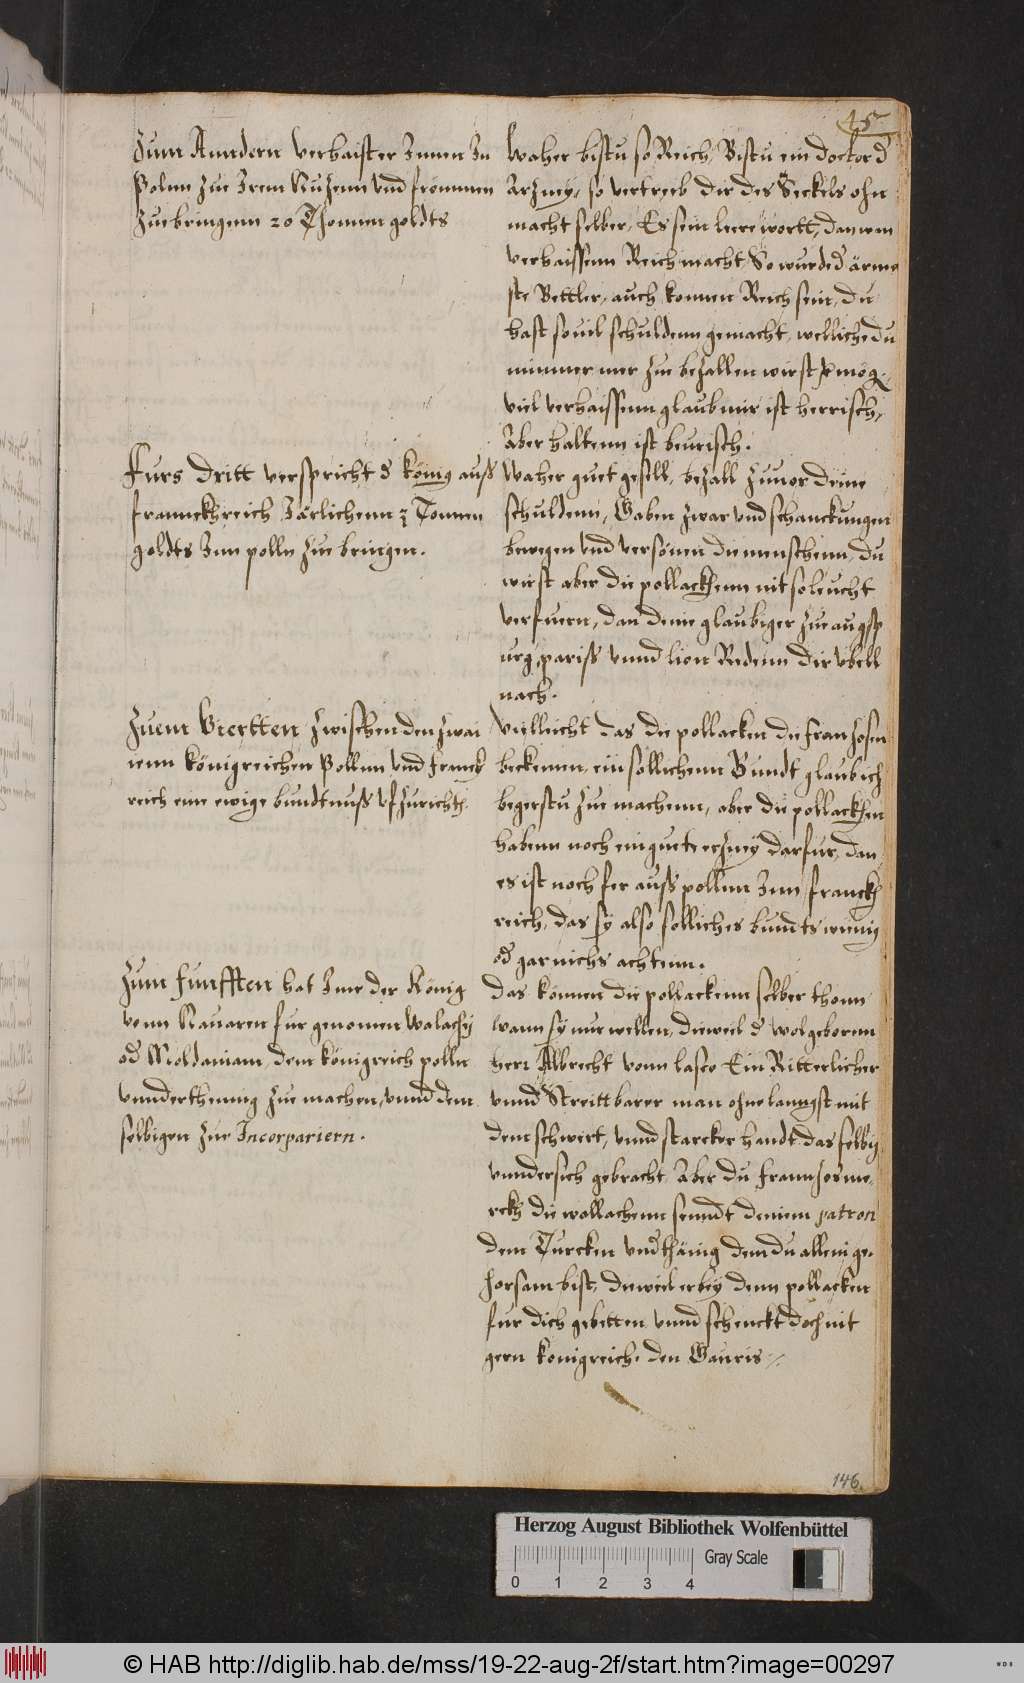 45
Zum Anndern verhaist er Innen In
Polnn zue Irem Nuzenn vnd frommen
Zue bringenn 20 Thonnen goldts
Waher bistu so Reich, Bistu ein doctor d
Arzney, so vertreib dir des Seckels ohn
macht selber, Es sein leere wortt, dan wan
verhaissenn Reich macht, So wurde d ärme
ste Bettler, auch konnen Reich sein, du
hast souil schuldenn gemacht, welliche du
nimmer mer zue bezallen wirst
viel verhaissenn glaub mir ist herrisch,
Aber haltenn ist beurisch.
Furs Dritt verspricht d könig auß
Frannckhreich Järlichenn 3 Tonnen
goldts Inn polln zue bringen.
Waher guet gesell, bezall zuuor deine
schuldenn, Gaben zwar vnd schanckungen
bewegen vnd versönen die menschenn, du
wirst aber die pollackhenn nit so leucht
verfuern, dan deine glaubiger zue augsp
urg, pariß vnnd lion Redenn dir vbell
nach.
Zuem Viertten zwischen den zwai
enn königreichen Pollnn vnd franck
reich eine ewige bundtnuß vfzuricht
Villeicht das die pollacken die franzosen
bekemen, ein sollichenn Bundt glaub ich
begerstu zue machenn, aber die pollackhen
habenn noch ein guete erzney darfur, dan
es ist noch fer auß pollnn Inn franckh
reich, das sy also solliches bundts wenig
od gar nichs achtenn.
Zum funfften hat Ime der König
vonn Nauaren fur genomen Walachy
od Moldauiam, dem königreich polln
vnnderthennig zue machen, vnnd dem
selbigen zue Incorpariern.
das können die pollackenn selber thonn
wann sy nur wellen, dieweil d wolgeborenn
herr Albrecht vonn lasco Ein Ritterlicher
vnnd Streittbarer man ohnelanngst mit
dem schwert, vnnd starcker handt das selbig
vnndersich gebracht, Aber du frannzos me
rckh die wallachenn seindt deinem patron
dem Turcken vnd thänig, dem du allein ge
horsam bist, dieweil er bey denn pollacken
fur dich gebetten, vnnd schenckt doch nit
gern königreich, den Gauris
146
Herzog August Bibliothek Wolfenbüttel
Gray Scale
0 1 2 3 4
© HAB http://diglib.hab.de/mss/19-22-aug-2f/start.htm?image=00297